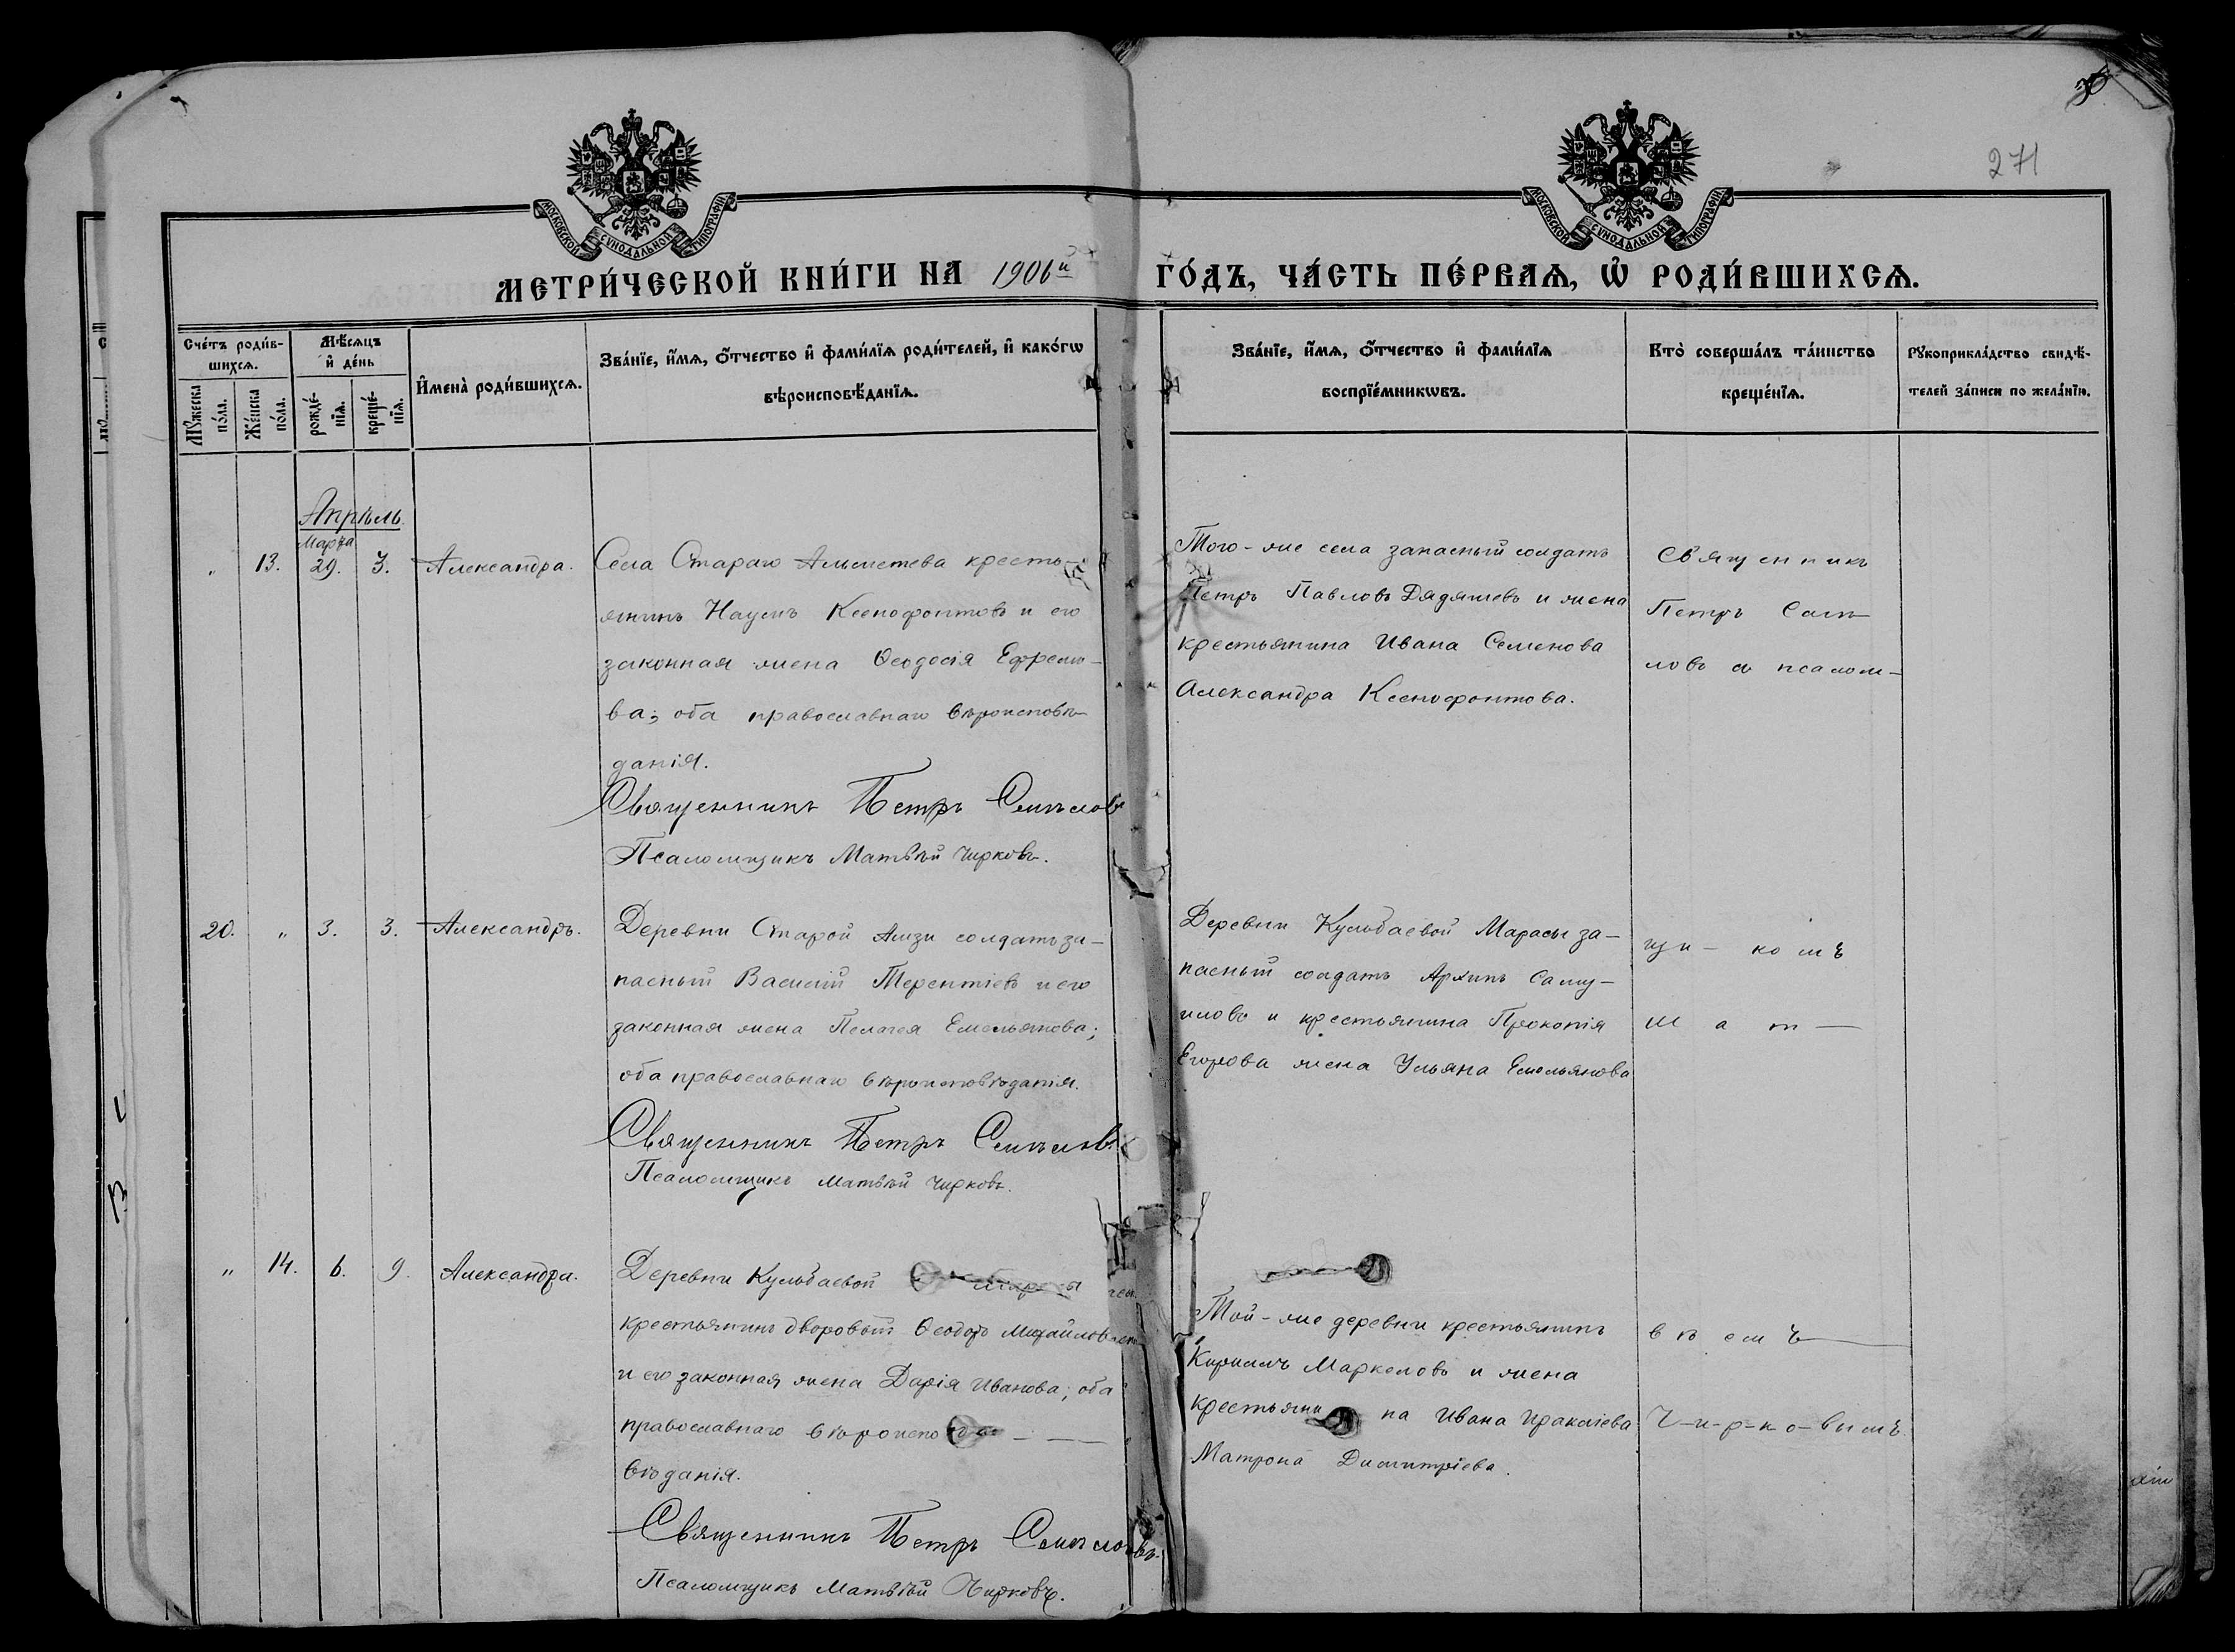 30
271
МОСКОВСКОЙ СУНОДАЛЬНОЙ ТИПОГРАФІИ
МОСКОВСКОЙ СУНОДАЛЬНОЙ ТИПОГРАФІИ
МЕТРИ́ЧЕСКОЙ КНИ́ГИ НА 1906й ГО́ДЪ, ЧА́СТЬ ПЕ́РВАѦ, Ѡ҆ РОДИ́ВШИХСѦ.
Сче́тъ роди́в-
шихсѧ.
Мꙋ́жеска по́ла.
Же́нска по́ла.
Мѣ́сѧцъ
и҆ де́нь
рожде́-
нїѧ.
креще́-
нїѧ.
И҆мена̀ роди́вшихсѧ.
Зва́нїе, и҆́мѧ, ѻ҆́тчество и҆ фами́лїѧ роди́телей, и҆ како́гѡ
вѣроисповѣ́данїѧ.
Зва́нїе, и҆́мѧ, ѻ҆́тчество и҆ фами́лїѧ
воспрїе́мникѡвъ.
Кто̀ соверша́лъ та́инство
креще́нїѧ.
Рꙋкоприкла́дство свидѣ́-
телей за́писи по жела́нїю.
Апрѣль
Марта
" 13. 29. 3. Александра.
Села Стараго Альметева кресть-
янинъ Наумъ Ксенофонтовъ и его
законная жена Ѳеодосія Ефремо-
ва; оба православнаго вѣроисповѣ-
данія.
Священникъ Петръ Смысловъ
Псаломщикъ Матвѣй Чирковъ.
Того-же села запасный солдатъ
Петръ Павловъ Дядяшевъ и жена
крестьянина Ивана Семенова
Александра Ксенофонтова.
Священникъ
Петръ Смыс
ловъ съ псалом-
20. " 3. 3. Александръ.
Деревни Старой Амзи солдатъ за-
пасный Василій Терентіевъ и его
законная жена Пелагея Емельянова;
оба православнаго вѣроисповѣданія.
Священникъ Петръ Смысловъ
Псаломщикъ Матвѣй Чирковъ.
Деревни Кульбаевой Марасы за-
пасный солдатъ Архипъ Саму-
иловъ и крестьянина Прокопія
Егорова жена Ульяна Емельянова
щи-комъ
Мат-
" 14. 6. 9. Александра.
Деревни Кульбаевой Марасы
крестьянинъ дворовый Ѳеодоръ Михайловъ
и его законная жена Дарія Иванова; оба
православнаго вѣроиспо
вѣданія.
Священникъ Петръ Смысловъ.
Псаломщикъ Матвѣй Чирковъ.
Той-же деревни крестьянинъ
Кириллъ Маркеловъ и жена
крестьяни на Ивана Ираклиева
Матрона Димитріева.
вѣемъ
Ч-и-р-ко-вымъ.